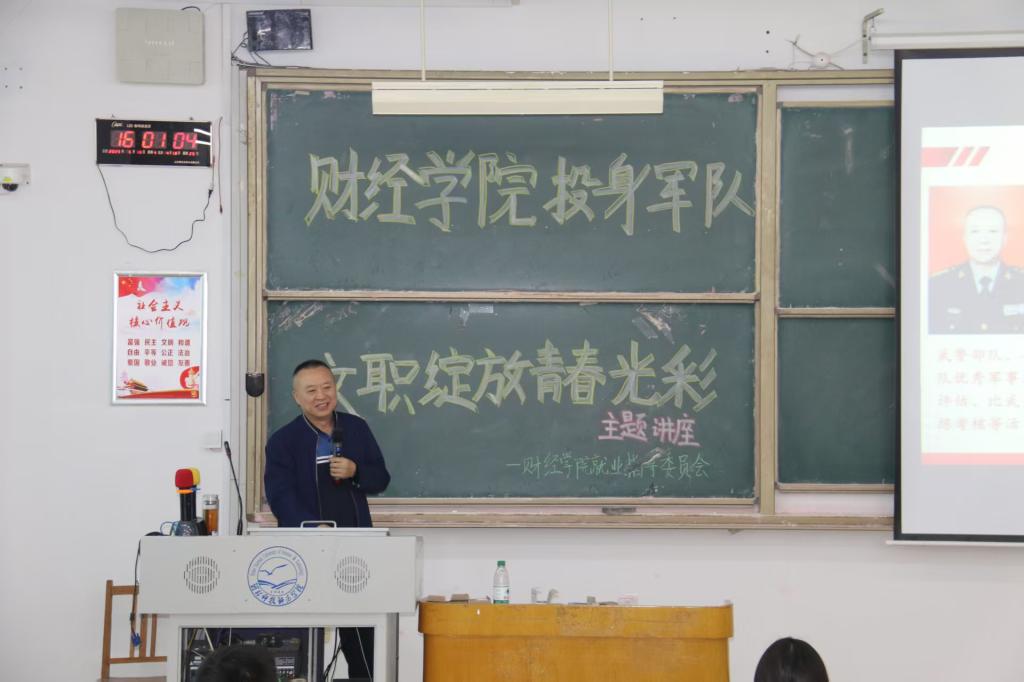 16 01 04
社会主义
核心价值观
富强 民主 文明 和谐
自由 平等 公正 法治
爱国 敬业 诚信 友善
财经学院投身军队
文职绽放青春光彩
主题讲座
—财经学院就业指导委员会
武警部队、
队优秀军事
评估、比武
练考核等活